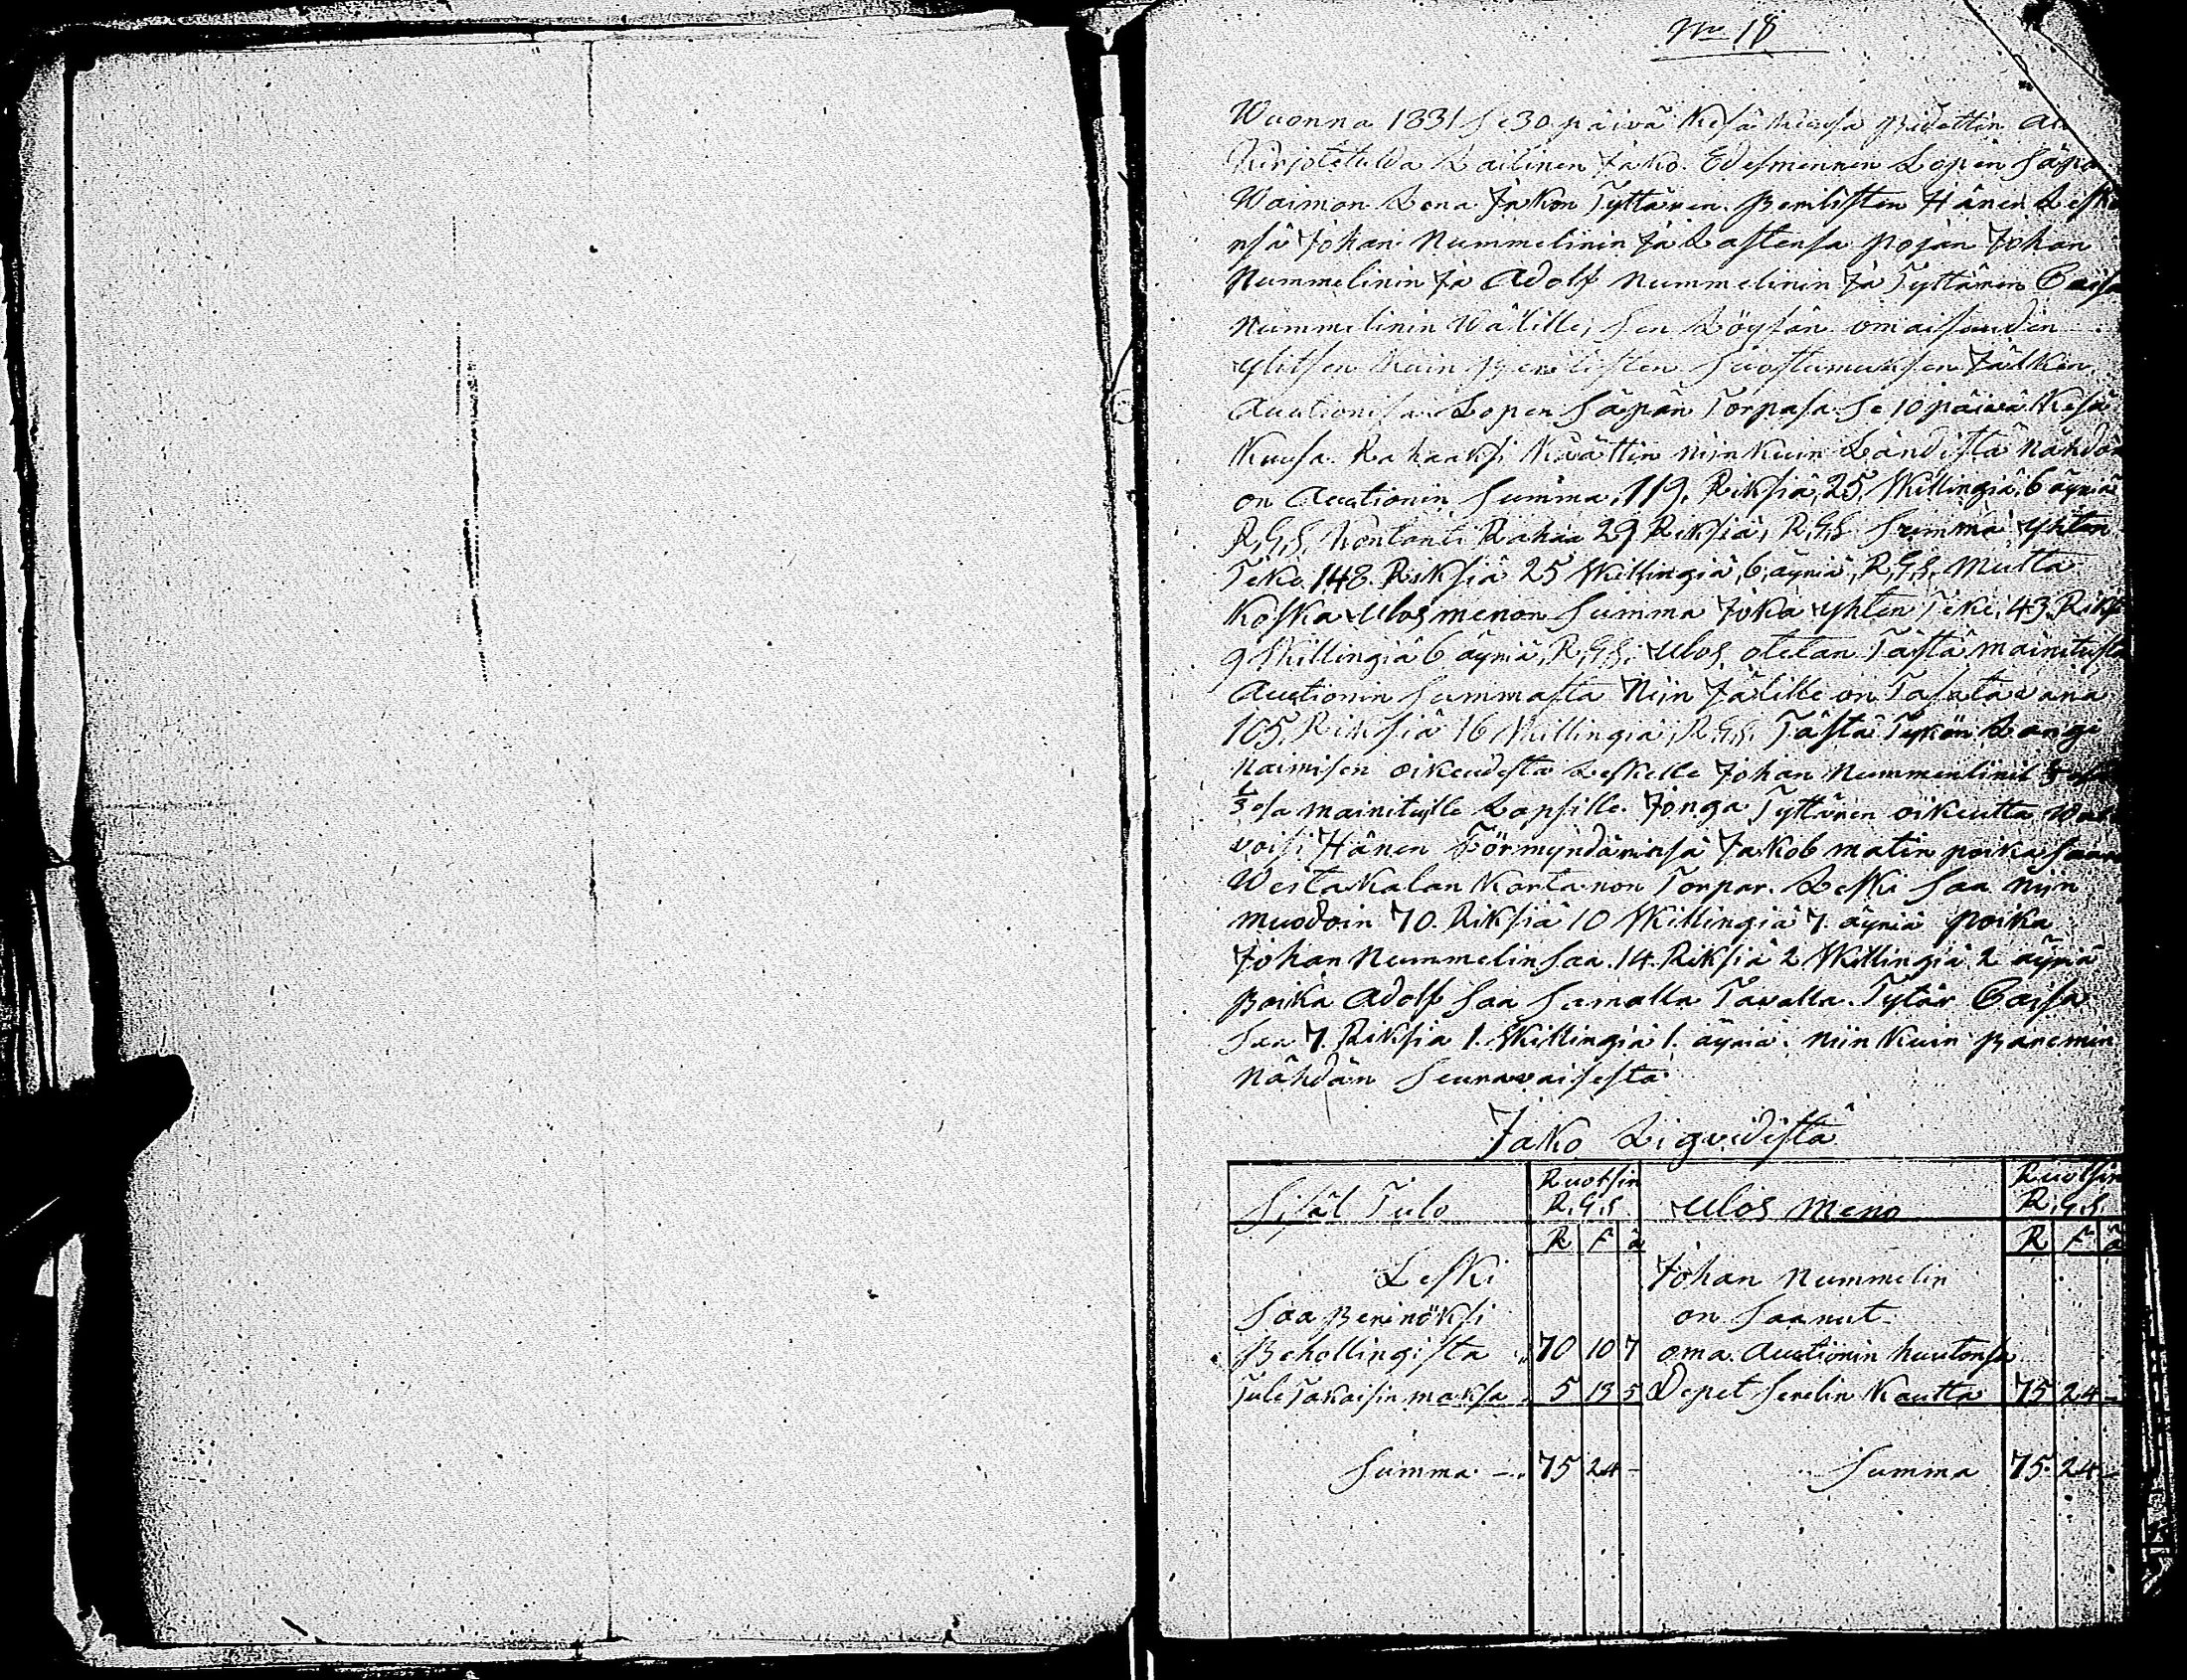 No 18
Wuonna 1831 se 30 päivä Kesä Kuusa Pidettin
Kirjoitetulda Lailinen Jako. Edesmennen Lopen Säpän
Waimon Lena Jakon Tyttären. Perilisten Hänen Leski
nsä Johan Nummelinin Ja Lastensa Pojan Johan
Nummelinin Ja Adolf Nummelinin Ja Tyttären Caisa
Nummelinin Wälille, sen Löysän omaisuuden
ylitsen Kuin Perilisten Suostumuksen Jälken
Auctionisa Lopen Säpän Torpasa Se 10 päivä Kesä
Kuusa Rahaaksi Käättin niin Kuin Längistä nähdän
on Auctionin Summa, 119, Riksiä, 25, Skillingiä, 6 äyriä
R,G,S, Kontanti Rahaa 29 Riksiä, R,G,S Summa yhten
Teko 148 Riksiä 25 Skillingiä, 6, äyriä, R,G,S, Mutta
Koska Ulosmenon Summa Joka yhten Teke, 43, Riks
9 Skillingiä 6 äyriä, R,G,S, Ulos otetan Tästä mainitusta
Auctionin Summasta Niin Jälille on Jasattavana
105, Riksiä 16 Skillingiä, R,G,S, Tästä Tykön Lange
Naimisen oikeudesta Leskelle Johan Nummenlinil
1/3 osa mainituille Lapsille. Jonga Tyttären oikeutta
voisi Hänen Förmyndärinsä Jakob Matin poika
Westa Kalan Kartanon Torpar. Leski Saa Niin
muodoin 70. Riksiä 10 Skillingiä 7. äyriä Poika
Johan Nummelin Saa. 14. Riksiä 2 Skillingiä 2 äyriä
Poika Adolf Saa Samalla Tavalla. Tytär Caisa
Saa 7. Riksiä 1. Skillingiä 1. äyriä. niin Kuin Paremin
Nähdän Seuravaisesta
Jako Ligvidistä
Sisäl Tulo Ruotsin R,G,S Ulos Meno Ruotsin R,G,S,
R ſ ä R ſ ä
Leski Johan Nummelin
Saa Perinöksi on Saanut
Behollingista 70 10 7 oma Auctionin huutonsa
Tule Takaisin maksa 5 13 5 Depet Sedelin Kautta 75 24 -
Summa - 75 24 - Summa 75 24 -